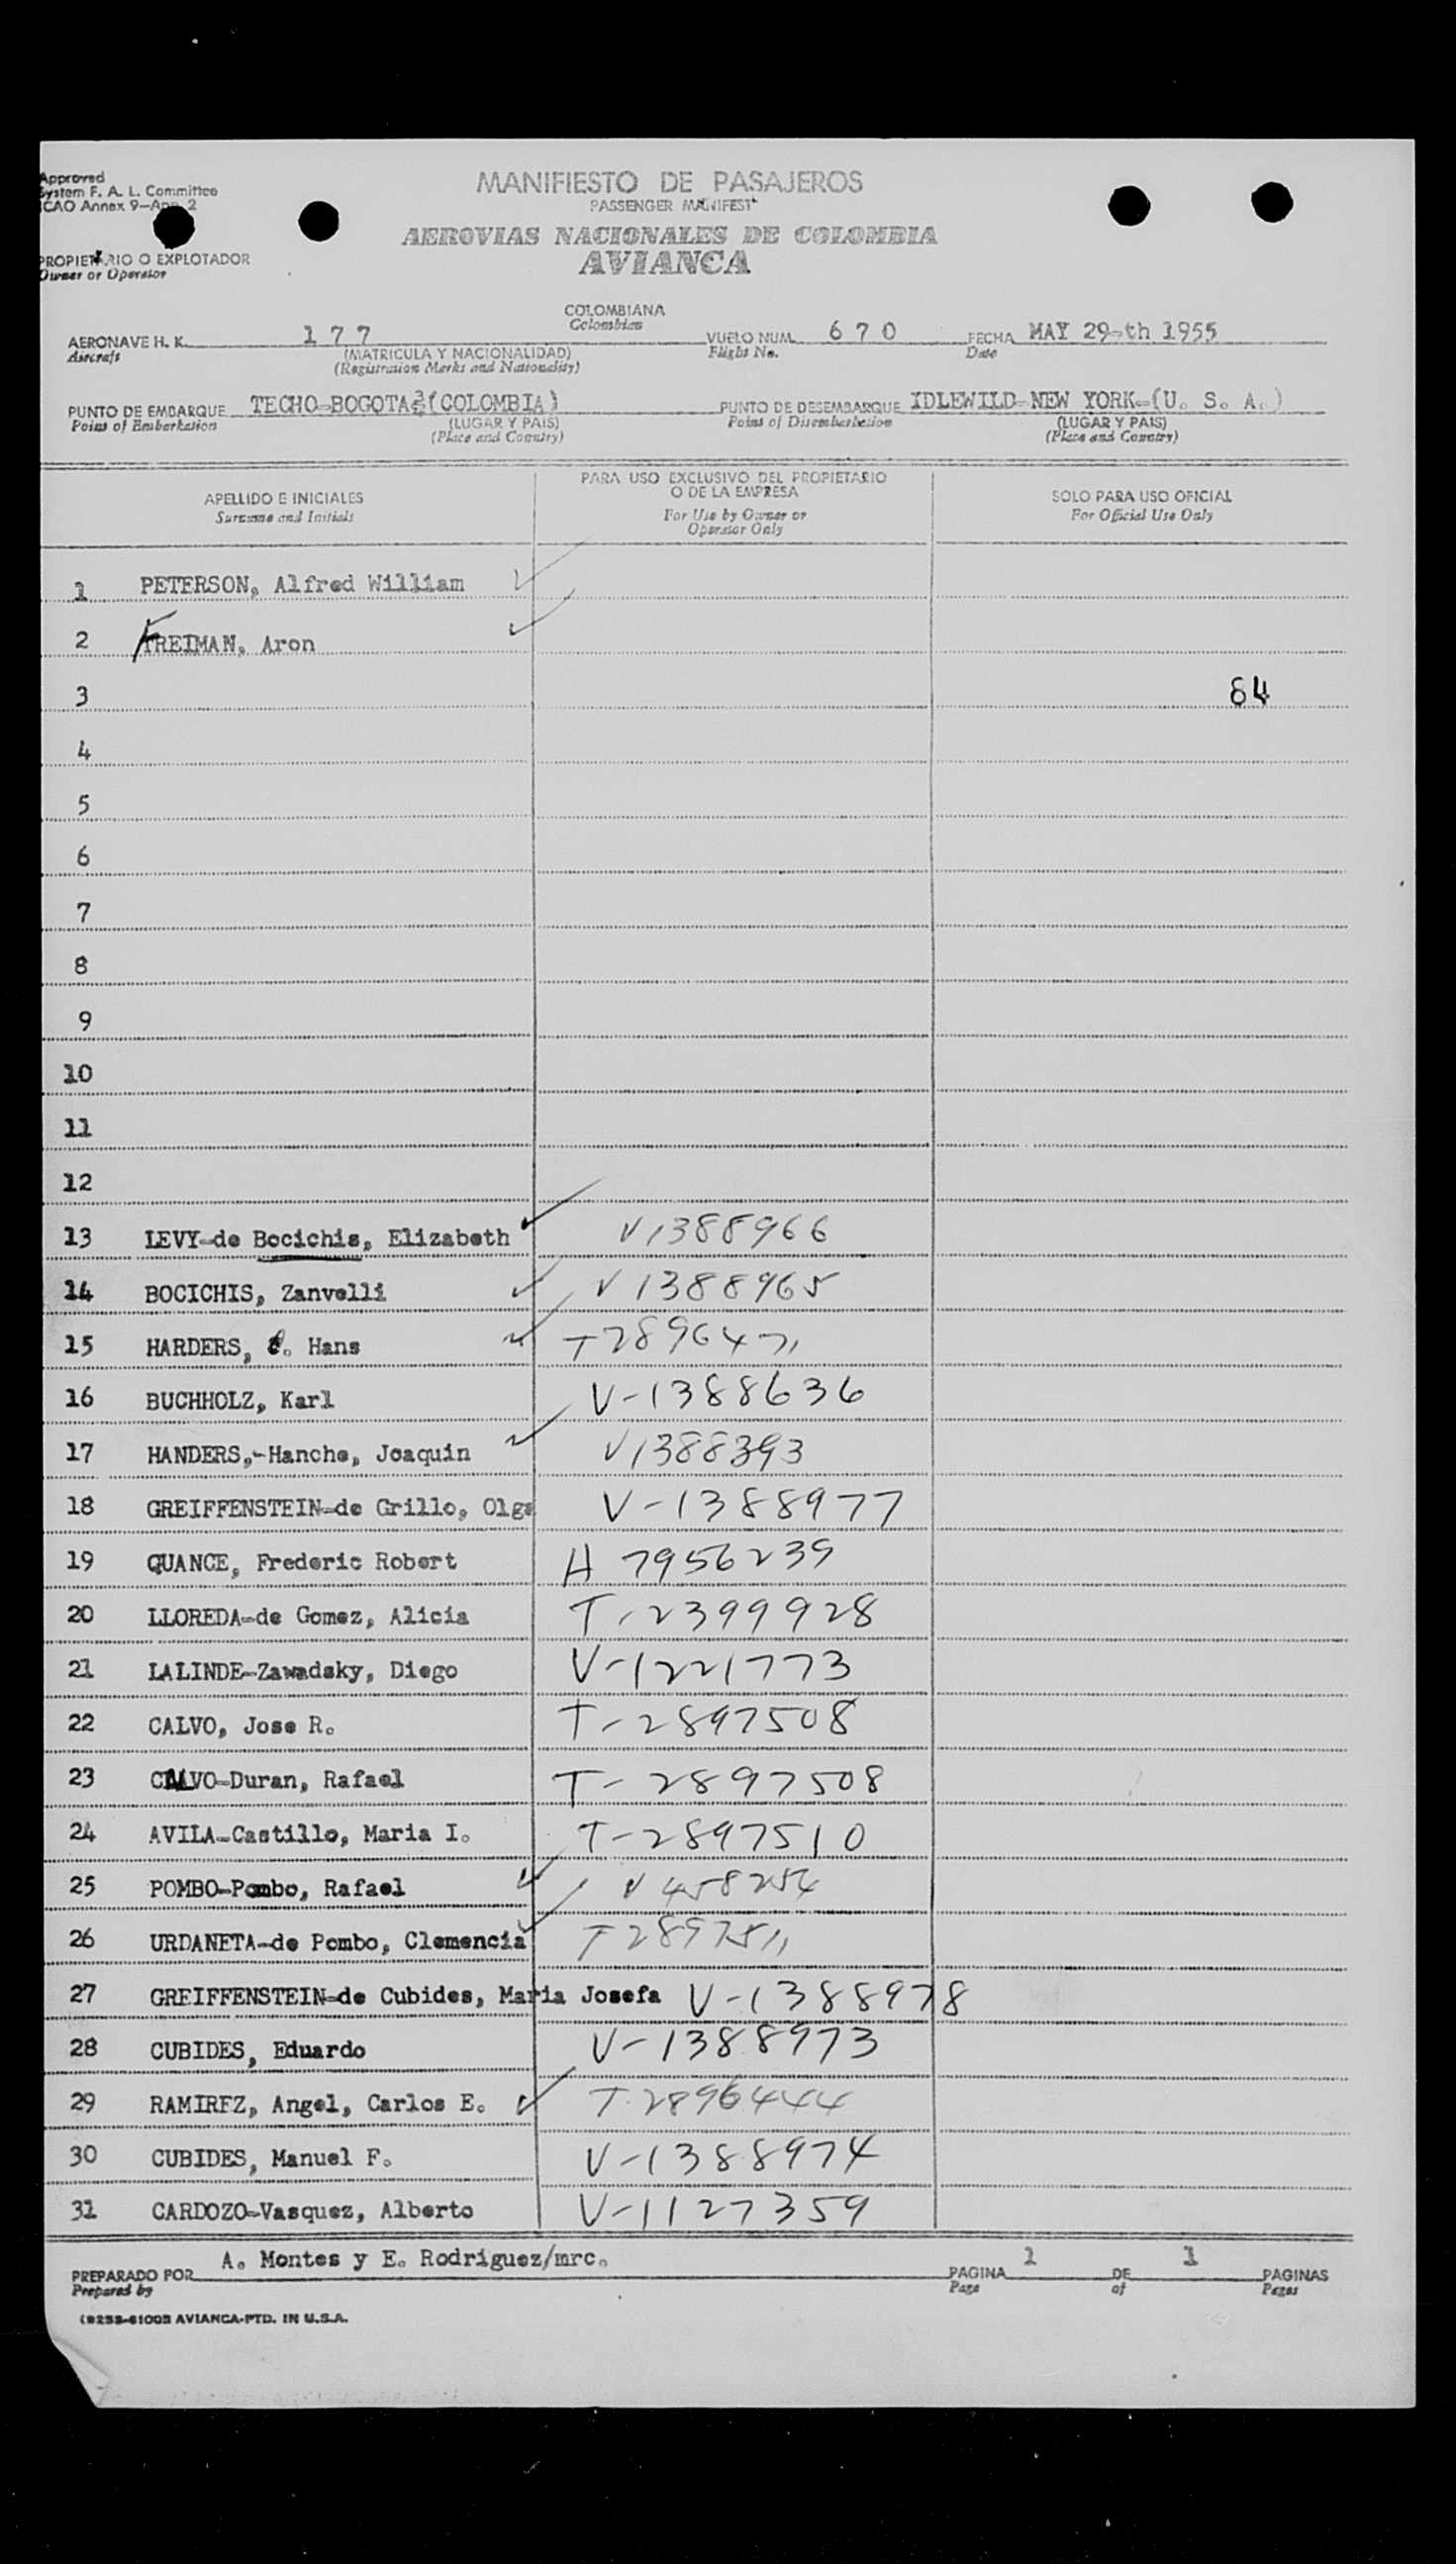 Approved
System F. A. L. Committee
ICAO Annex 9—App. 2
MANIFIESTO DE PASAJEROS
PASSENGER MANIFEST
AEROVIAS NACIONALES DE COLOMBIA
AVIANCA
PROPIETARIO O EXPLOTADOR
Owner or Operator
COLOMBIANA
Colombian
AERONAVE H. K. 177
Aircraft
(MATRICULA Y NACIONALIDAD)
(Registration Marks and Nationality)
VUELO NUM. 670
Flight No.
FECHA MAY 29-th 1955
Date
PUNTO DE EMBARQUE TECHO-BOGOTA-(COLOMBIA)
Point of Embarkation
(LUGAR Y PAIS)
(Place and Country)
PUNTO DE DESEMBARQUE IDLEWILD-NEW YORK-(U. S. A.)
Point of Disembarkation
(LUGAR Y PAIS)
(Place and Country)
APELLIDO E INICIALES
Surname and Initials
PARA USO EXCLUSIVO DEL PROPIETARIO
O DE LA EMPRESA
For Use by Owner or
Operator Only
SOLO PARA USO OFICIAL
For Official Use Only
1 PETERSON, Alfred William
2 FREIMAN, Aron
3 84
4
5
6
7
8
9
10
11
12
13 LEVY-de Bocichis, Elizabeth V1388966
14 BOCICHIS, Zanvelli V1388965
15 HARDERS, Hans
16 BUCHHOLZ, Karl V-1388636
17 HANDERS,-Hanche, Joaquin V1388393
18 GREIFFENSTEIN-de Grillo, Olga V-1388977
19 QUANCE, Frederic Robert H 7956239
20 LLOREDA-de Gomez, Alicia T-2399928
21 LALINDE-Zawadsky, Diego V-1221773
22 CALVO, Jose R. T-2897508
23 CALVO-Duran, Rafael T-2897508
24 AVILA-Castillo, Maria I. T-2897510
25 POMBO-Pombo, Rafael V458254
26 URDANETA-de Pombo, Clemencia T2897511
27 GREIFFENSTEIN-de Cubides, Maria Josefa V-1388978
28 CUBIDES, Eduardo V-1388973
29 RAMIREZ, Angel, Carlos E. T-2896444
30 CUBIDES, Manuel F. V-1388974
31 CARDOZO-Vasquez, Alberto V-1127359
PREPARADO POR A. Montes y E. Rodriguez/mrc.
Prepared by
PAGINA 1 DE 1 PAGINAS
Page of Pages
AVIANCA-PTD. IN U.S.A.